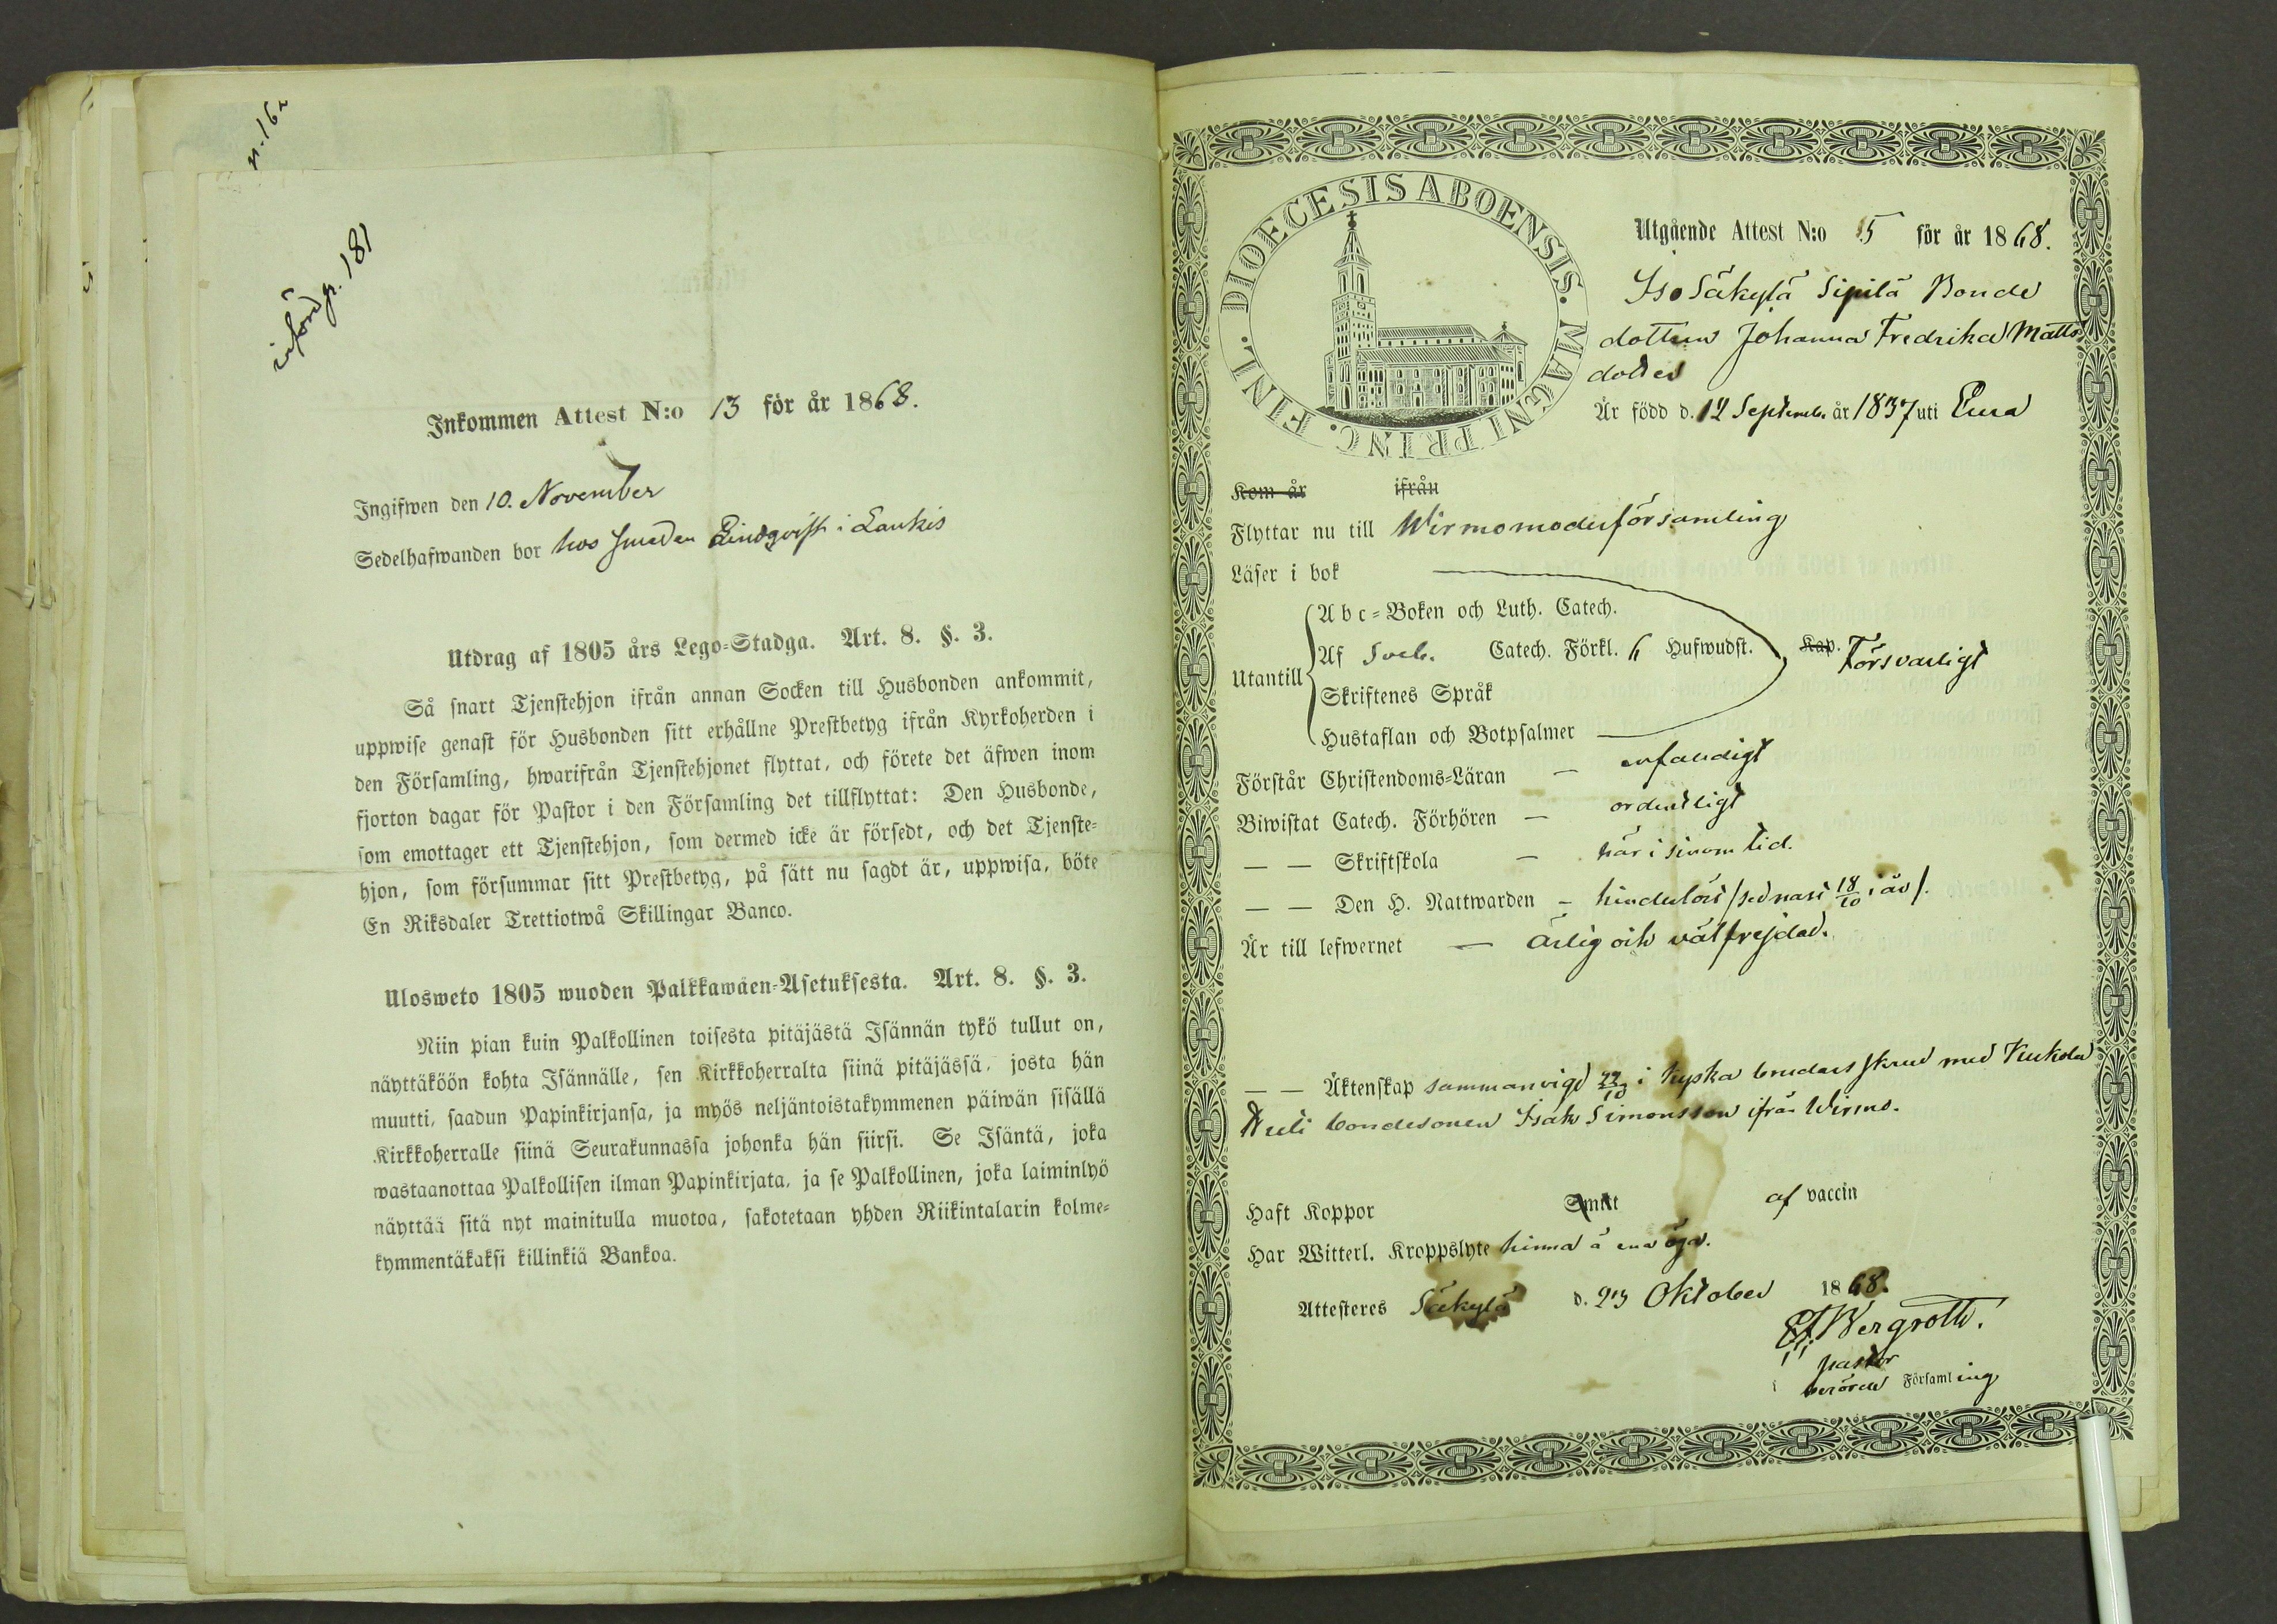 p. 162
införd p. 181
Inkommen Attest N:o 13 för år 1868.
Ingifwen den 10. November
Sedelhafwanden bor hos smeden Lindqvist i Laukis
Utdrag af 1805 års Lego-Stadga. Art. 8. §. 3.
Så snart Tjenstehjon ifrån annan Socken till Husbonden ankommit,
uppwise genast för Husbonden sitt erhållne Prestbetyg ifrån Kyrkoherden i
den Församling, hwarifrån Tjenstehjonet flyttat, och förete det äfwen inom
fjorton dagar för Pastor i den Församling det tillflyttat: Den Husbonde,
som emottager ett Tjenstehjon, som dermed icke är försedt, och det Tjenste-
hjon, som försummar sitt Prestbetyg, på sätt nu sagdt är, uppwisa, böte
En Riksdaler Trettiotwå Skillingar Banco.
Ulosweto 1805 wuoden Palkkawäen-Asetuksesta. Art. 8. §. 3.
Niin pian kuin Palkollinen toisesta pitäjästä Isännän tykö tullut on,
näyttäköön kohta Isännälle, sen Kirkkoherralta siinä pitäjässä, josta hän
muutti, saadun Papinkirjansa, ja myös neljäntoistakymmenen päiwän sisällä
Kirkkoherralle siinä Seurakunnassa johonka hän siirsi. Se Isäntä, joka
wastaanottaa Palkollisen ilman Papinkirjata, ja se Palkollinen, joka laiminlyö
näyttää sitä nyt mainitulla muotoa, sakotetaan yhden Riikintalarin kolme-
kymmentäkaksi killinkiä Bankoa.
DIOECESIS ABOENSIS. MAGNI PRINC. FINL.
Utgående Attest N:o 5 för år 1868.
Iso Säkylä Sipilä Bonde
dottren Johanna Fredrika Matts
dotter
Är född d. 12 Septemb. år 1837 uti Eura
Kom år ifrån
Flyttar nu till Wirmo moderförsamling
Läser i bok
Abc-Boken och Luth. Catech.
Utantill Af Sveb. Catech. Förkl. 6 Hufwudst. Kap. Försvarligt
Skriftenes Språk
Hustaflan och Botpsalmer
Förstår Christendoms-Läran – enfaldigt
Biwistat Catech. Förhören – ordentligt
— — Skriftskola – här i sinom tid.
— — Den H. Nattwarden – hinderlöst /sednast 18/10 i år/.
Är till lefwernet — ärlig och välfrejdad.
— — Äktenskap sammanvigd 22/10 i kyska brudars skrud med Kukola
bondesonen Isak Simonsson ifrån Wirmo.
Haft Koppor Smitt af vaccin
Har Witterl. Kroppslyte hinna å ena ögat.
Attesteres Säkylä d. 23 Oktober 1868.
Bergroth.
pastor
Församling